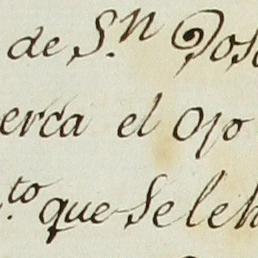 de S.n Jose
erca el Ojo
.to que se le h